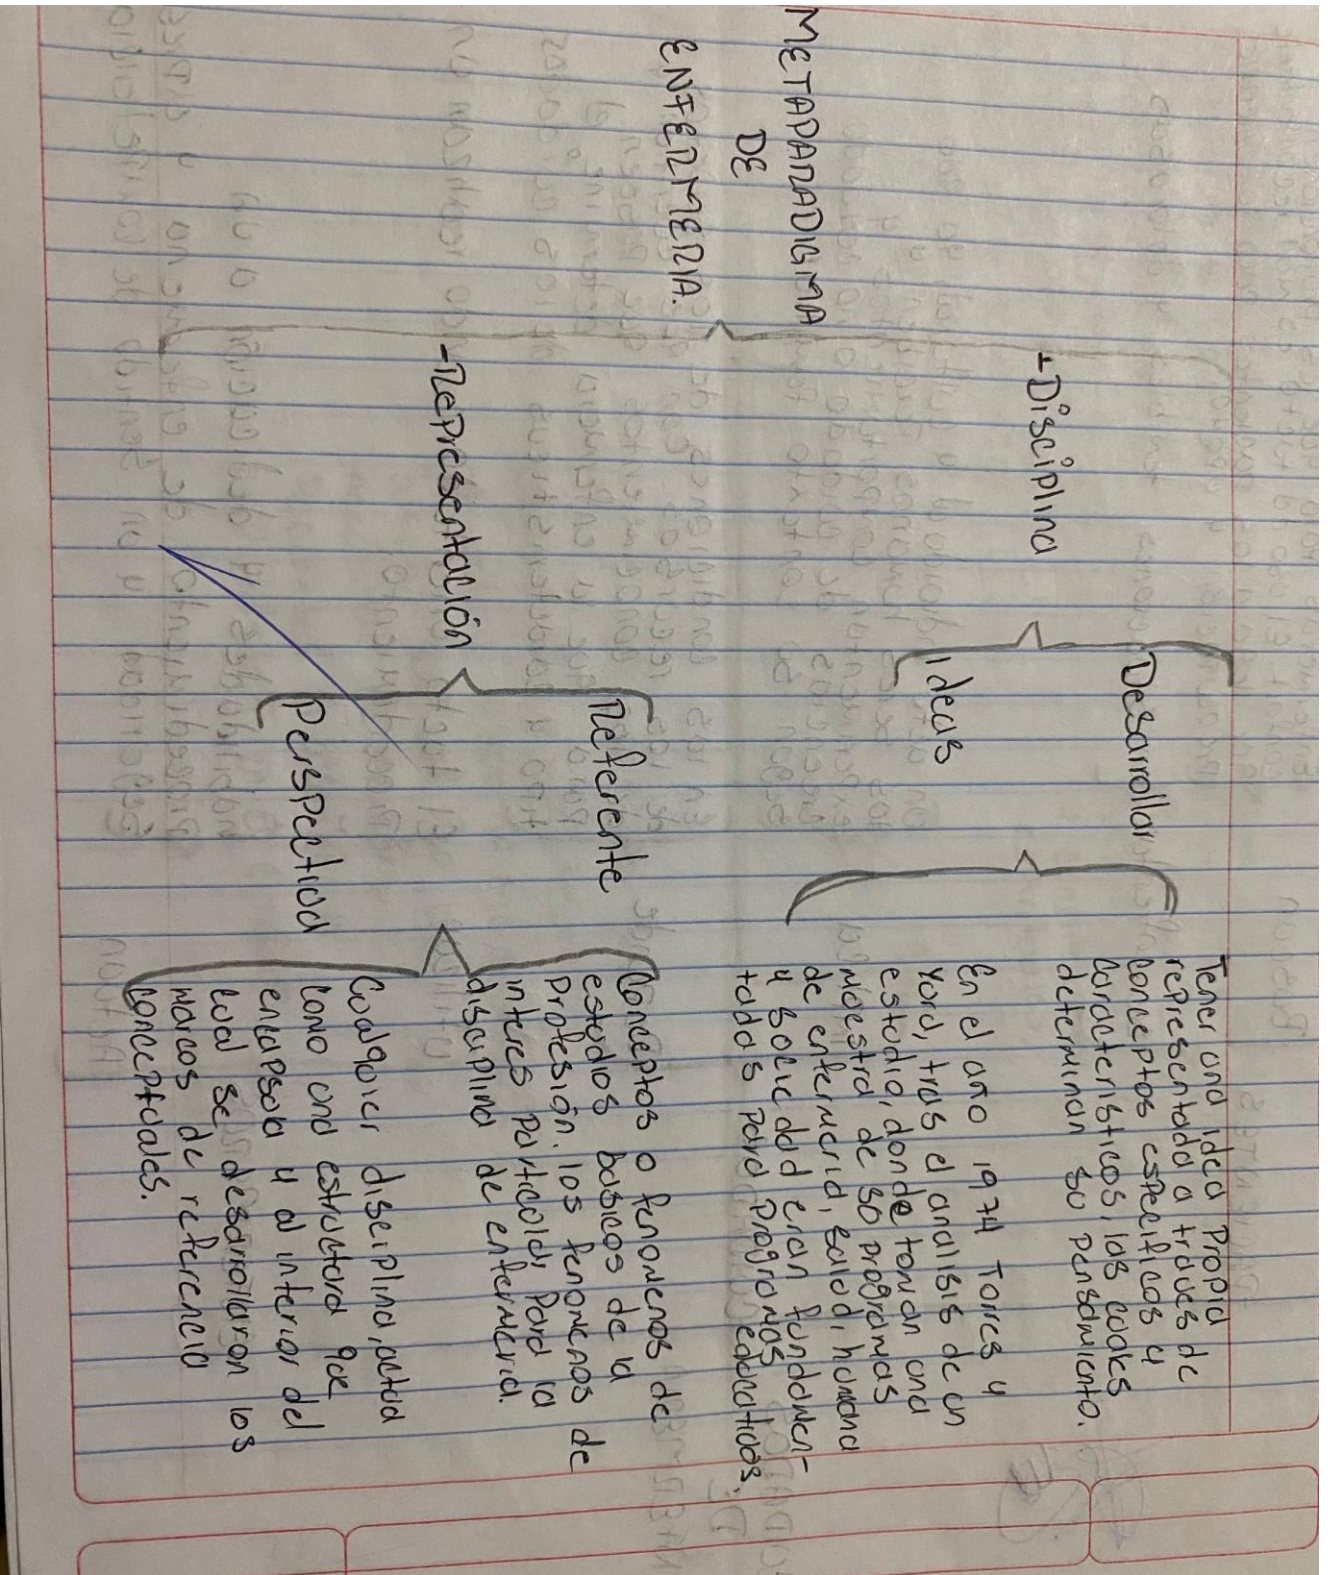 METAPARADIGMA
DE
ENFERMERIA.
-Disciplina
Desarrollar
Ideas
Tener una idea propia
representada a traves de
conceptos especificos y
caracteristicos, las cuales
determinan su pensamiento.
En el año 1974 Torres y
Yord, tras el analisis de un
estudio, donde toman una
muestra de 50 programas
de enfermeria, salud, humana
y sociedad eran fundamen-
tadas para programas educativos.
-Representación
Referente
Perspectiva
Conceptos o fenomenos de
estudios basicos de la
profesión. los fenomenos de
interes particular para la
disciplina de enfermeria.
Cualquier disciplina, actua
como una estructura que
encapsula y al interior del
cual se desarrollaron los
marcos de referencia
conceptuales.